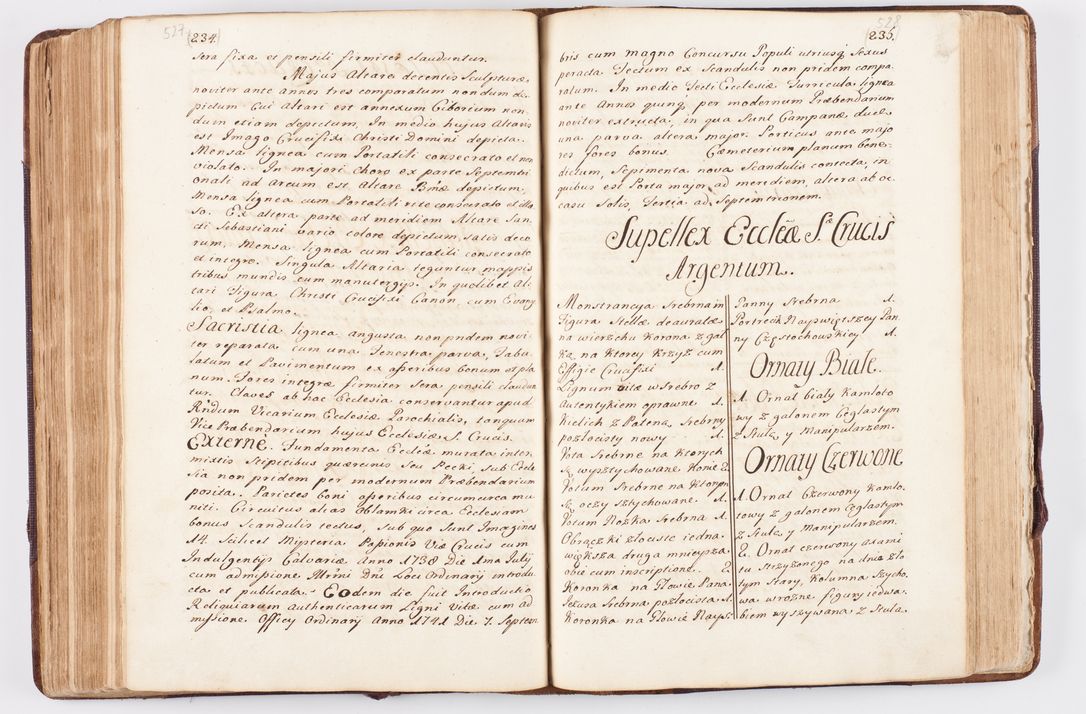 527
234.
Sera fixa et pensili firmiter clauduntur.
Majus Altare decentis Sculpturæ,
noviter ante annos tres comparatum nondum de-
pictum cui Altari est annexum Ciborium non
dum etiam depictum. In medio hujus Altaris
est Imago Crucifixi Christi Domini depicta.
Mensa lignea cum Portatili consecrato et non
violato. In majori choro ex parte Septemtri
onali ad arcum est Altare depictum,
Mensa lignea cum Portatili rite consecrato et illæ
so. Ex altera parte ad meridiem Altare San
cti Sebastiani vario colore depictum, satis deco
rum, Mensa lignea cum Portatili consecrato
et integro. Singula Altaria teguntur mappis
tribus mundis cum manutergijs. In quolibet Al
tari Figura Christi Crucifixi Canon, cum Evang
lio, et Psalmo.
Sacristia lignea angusta non pridem novi
ter reparata cum una Fenestra parva, Tabu
latum et Pavimentum ex asseribus bonum et pla
num. Fores integræ firmiter Sera pensili claudun
tur. Claves ab hac Ecclesia conservantur apud
Rndum Vicarium Ecclesiæ Parochialis, tanquam
Vice Præbendarium hujus Ecclesiæ S. Crucis.
Externè. Fundamenta Ecclesiæ murata inter
mixtis Stipitibus quercinis Seu Pecki, sub Eccle
sia non pridem per modernum Præbendarium
posita. Parietes boni asseribus circumcirca mu
niti. Circuitus alias Oblamki circa Ecclesiam
bonus Scandulis tectus, sub quo sunt Imagines
14. Scilicet Mysteria Passionis Viæ Crucis cum
Indulgentijs Calvariæ Anno 1738 Die 1ma Julij
cum admissione Dni Loci Ordinarij introdu
cta et publicata. Eodem die fuit Introductio
Reliquiarum authenticarum Ligni Vitæ cum ad
missione Officij Ordinarij Anno 1741 Die 7. Septem
528
235.
bris cum magno Concursu Populi utriusq Sexus
peracta Tectum ex Scandulis non pridem compa
ratum. In medio Tecti Ecclesiæ Turricula lignea
ante Annos quinq per modernum Præbendarium
noviter extructa, in qua sunt Campanæ duæ
una parva altera major. Porticus ante majo
res fores bonus. Cæmeterium planum bene-
dictum, Sepimenta nova Scandulis contecta, in
quibus est Porta major ad meridiem, altera ab oc
casu Solis, tertia ad Septemtrionem.
Supellex Ecclæ S. Crucis
Argentum.
Monstrancya Srebrna in
Figura Stellæ deauratæ
na wierzchu Korona z gal
ką, na ktorey krzyż cum
Effigie Crucifixi 1.
Lignum vitæ w Srebro z
autentykiem oprawne 1.
Kielich z Pateną Srebrny
pozłocisty nowy 1.
Vota Srebrne na ktorych
są wysztychowane Konie 2.
Votum Srebrne na ktorym
są oczy sztychowane 1.
Votum Nożka Srebrna 1.
Obrączki złociste iedna
większa druga mnieysza
obie cum inscriptione. 2
Koronka na Głowie Pana
Jezusa Srebrna pozłocista 1.
Koronka na Głowie Nayś.
Panny Srebrna 1.
Portrecik Nayświętszey Pan
ny Częstochowskiey 1.
Ornaty Białe.
1. Ornat biały kamloto
wy z galonem Ceglastym
z Stułą y Manipularzem.
Ornaty Czerwone
1. Ornat Czerwony kamlo
towy z galonem Ceglastym
z Stułą y Manipularzem.
2. Ornat czerwony axami
tu Strzyżonego na dnie zło
tym stary, kolumna szycho
wa wrożne figury iedwa-
biem wyszywana z Stułą